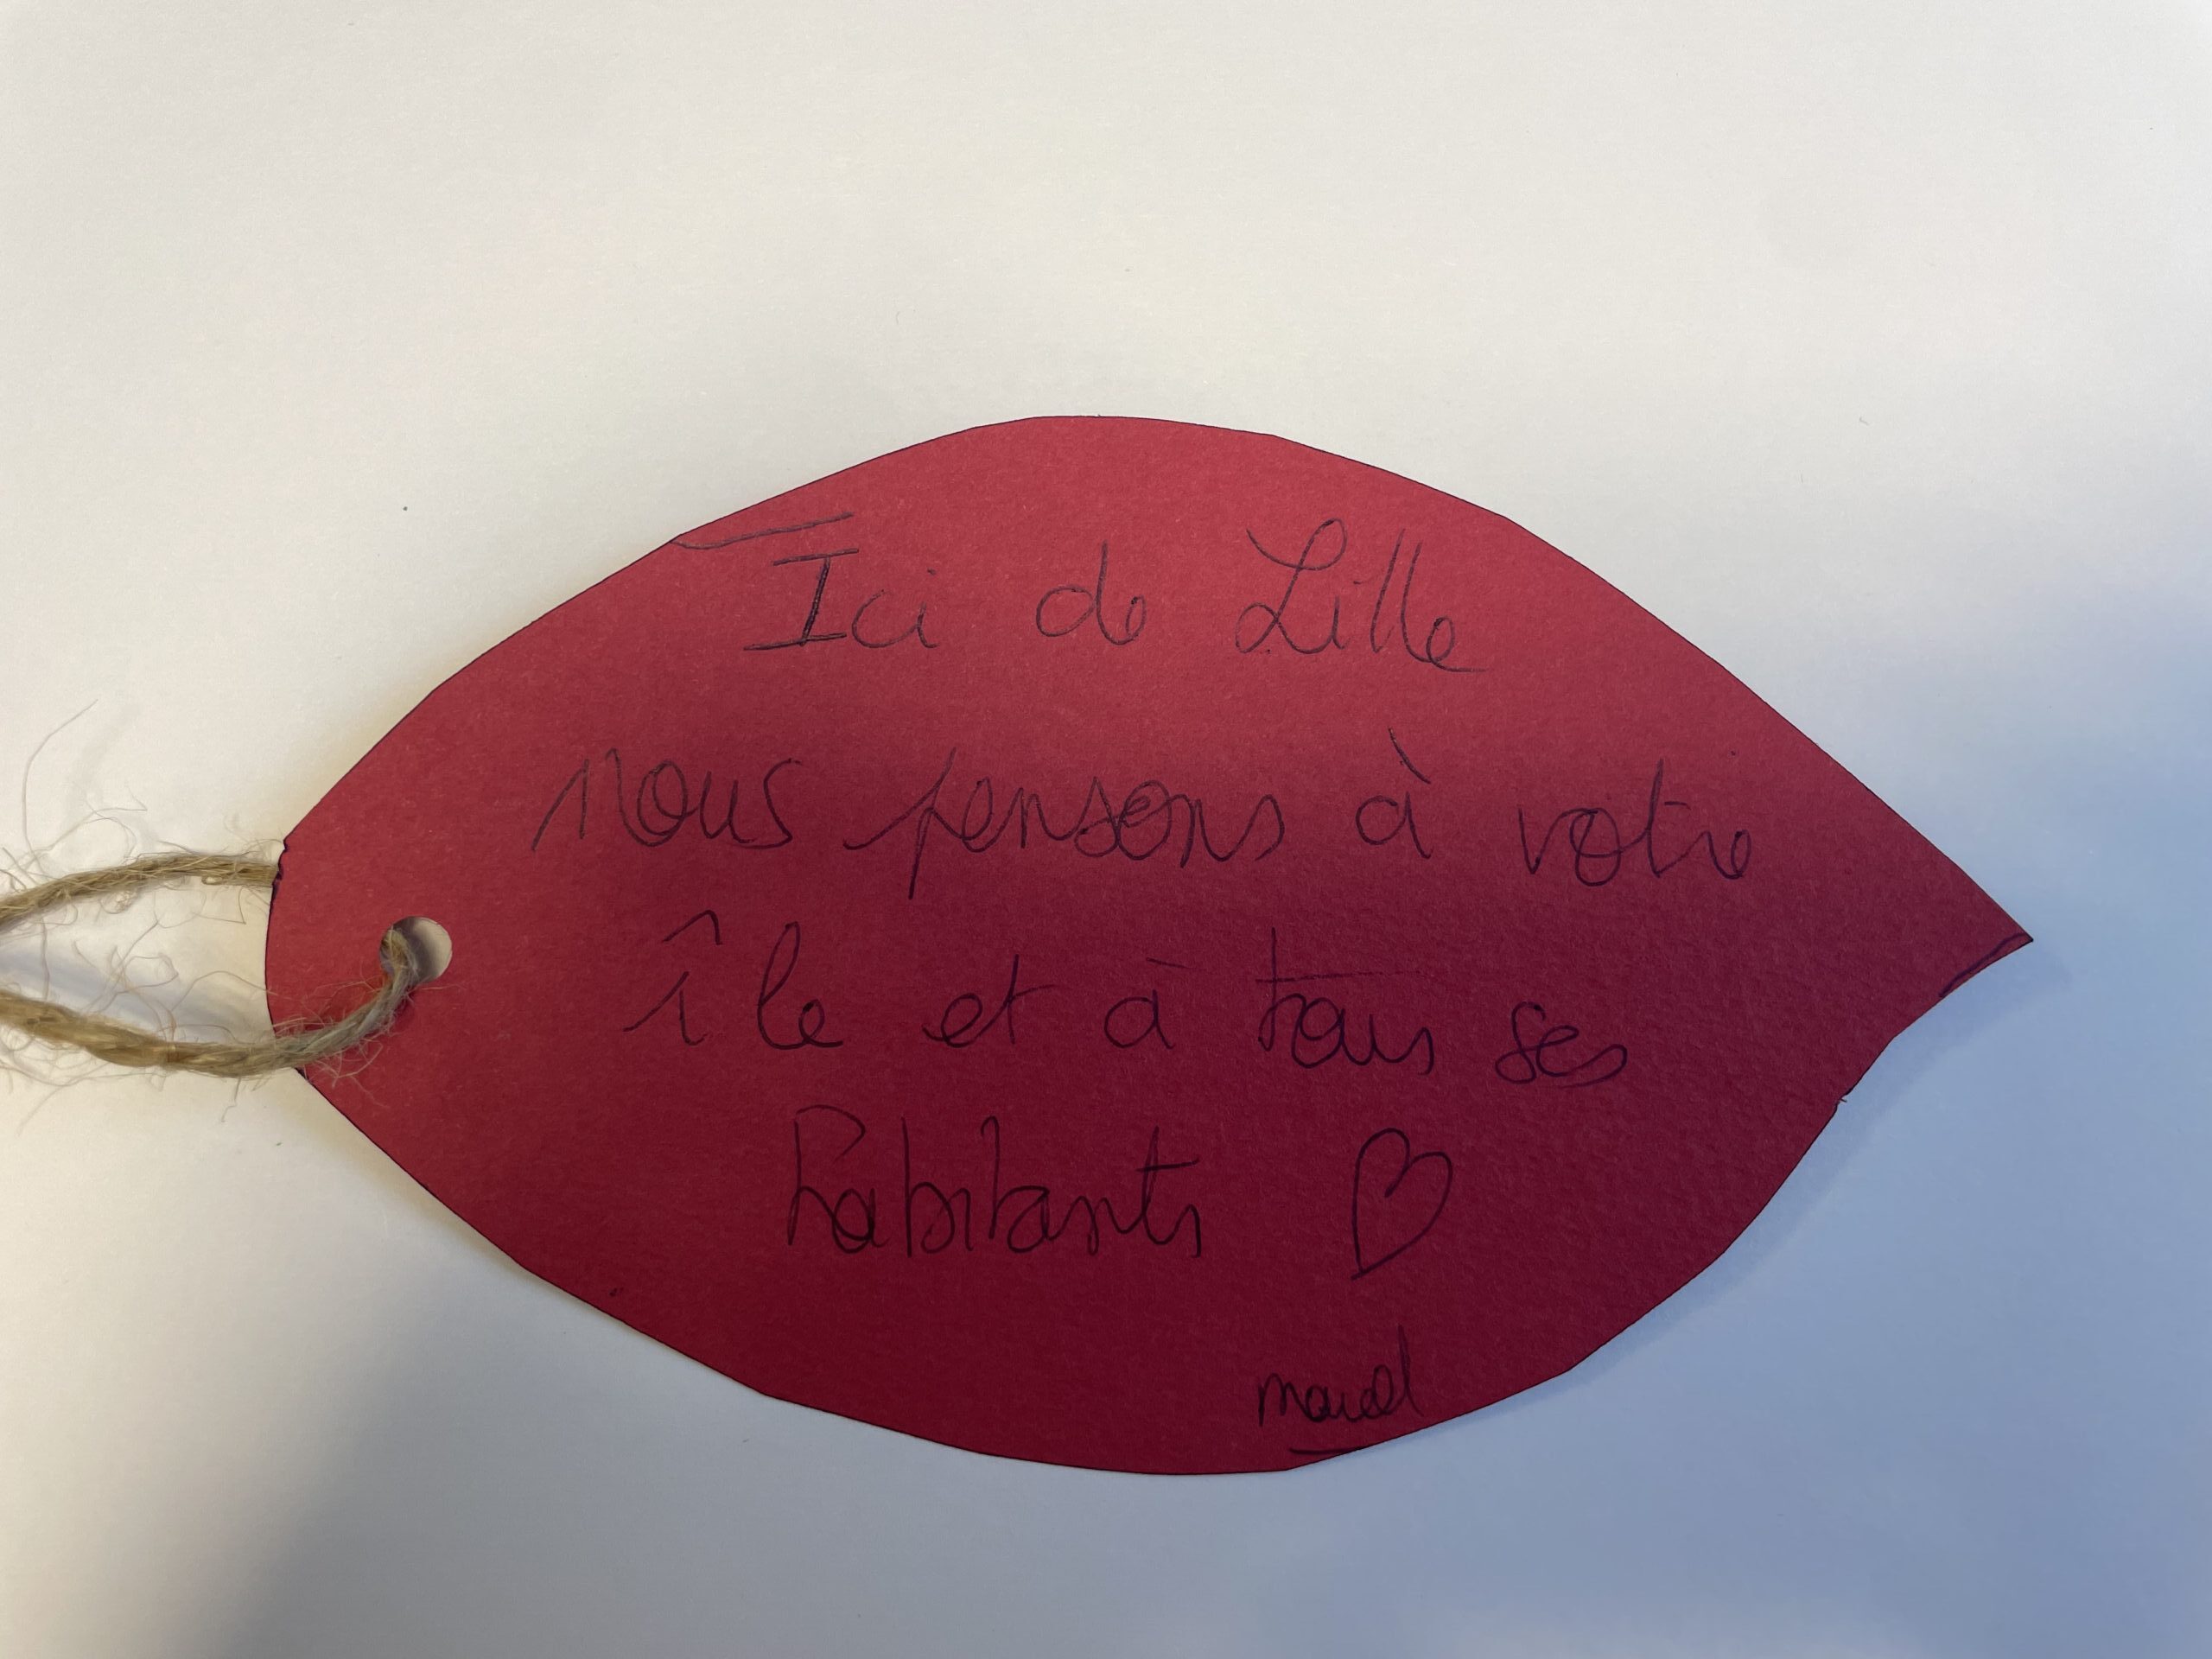 Ici de Lille
nous pensons à votre
île et à tous ses
habitants ♡
marcel